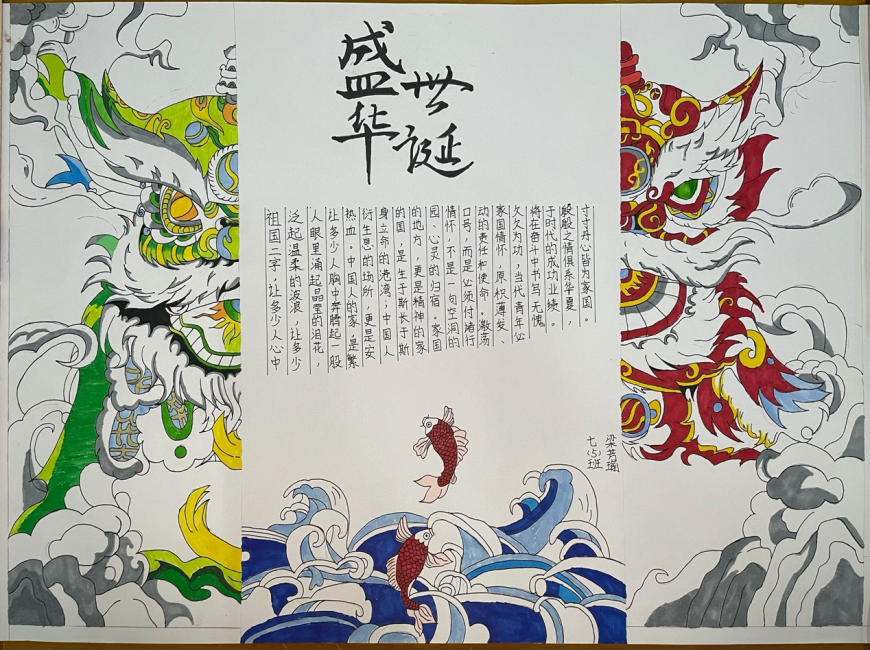 盛世
华诞
祖国二字，让多少人心中
泛起温柔的波浪，让多少
人眼里涌起晶莹的泪花，
让多少人胸中奔腾起一股
热血。中国人的家，是繁
衍生息的场所，更是安
身立命的港湾；中国人
的国，是生于斯长于斯
的地方，更是精神的家
园、心灵的归宿。家国
情怀，不是一句空洞的
口号，而是必须付诸行
动的责任和使命。激荡
家国情怀，厚积薄发、
久久为功，当代青年必
将在奋斗中书写无愧
于时代的成功业绩。
殷殷之情俱系华夏，
寸寸丹心皆为家国。
七(5)班
梁芳